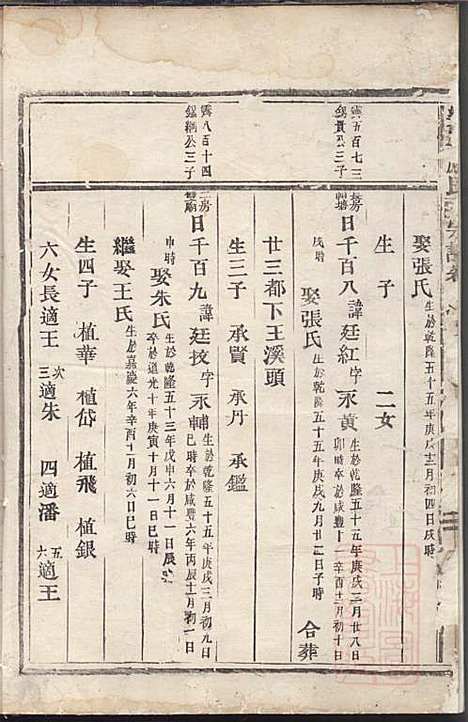 娶張氏 生於乾隆五十五年庚戌十二月初四日戌時
生 子 二女
寅五百七三
錫貴公三子
日千百八 諱廷紅 字永黃 生於乾隆五十五年庚戌三月廿八日
卯時卒於咸豐十一辛酉十二月初十日
戌時 娶張氏 生於乾隆五十五年庚戌九月廿二日子時 合葬
廿三都下王溪頭
生三子 承賢 承丹 承鑑
寅八百十四
公三子
二房
日千百九 諱廷技 字永輔 生於乾隆五十五年庚戌三月初九日
巳時卒於咸豐六年丙辰十一月初一日
申時 娶朱氏 生於乾隆五十三年戊申六月十一日辰時
卒於道光十年庚寅十月十一日巳時
繼娶王氏 生於嘉慶六年辛酉十月初六日巳時
生四子 植華 植岱 植飛 植銀
六女長適王 次三適朱 四適潘 五六適王